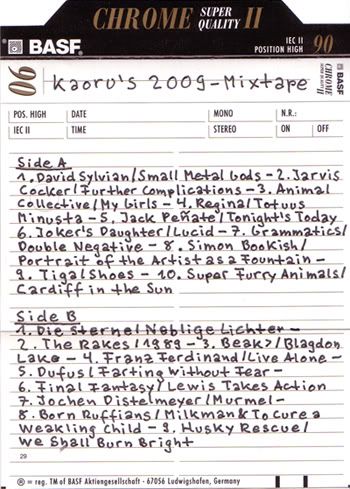 CHROME SUPER QUALITY II
BASF
IEC II
POSITION HIGH 90
90
Kaoru's 2009-Mixtape
BASF
CHROME
SUPER QUALITY II
POS. HIGH DATE MONO N.R.:
IEC II TIME STEREO ON OFF
Side A
1. David Sylvian/Small Metal Gods - 2. Jarvis
Cocker/Further Complications - 3. Animal
Collective/My Girls - 4. Regina/Totuus
Minusta - 5. Jack Peñate/Tonight's Today
6. Joker's Daughter/Lucid - 7. Grammatics/
Double Negative - 8. Simon Bookish/
Portrait of the Artist as a Fountain -
9. Tigal Shoes - 10. Super Furry Animals/
Cardiff in the Sun
Side B
1. Die Sterne/Neblige Lichter -
2. The Rakes/1989 - 3. Beak>/Blagdon
Lake - 4. Franz Ferdinand/Live Alone -
5. Dufus/Farting Without Fear -
6. Final Fantasy/Lewis Takes Action
7. Jochen Distelmeyer/Murmel -
8. Born Ruffians/Milkman & To cure a
Weakling Child - 9. Husky Rescue/
We Shall Burn Bright
29
® = reg. TM of BASF Aktiengesellschaft - 67056 Ludwigshafen, Germany